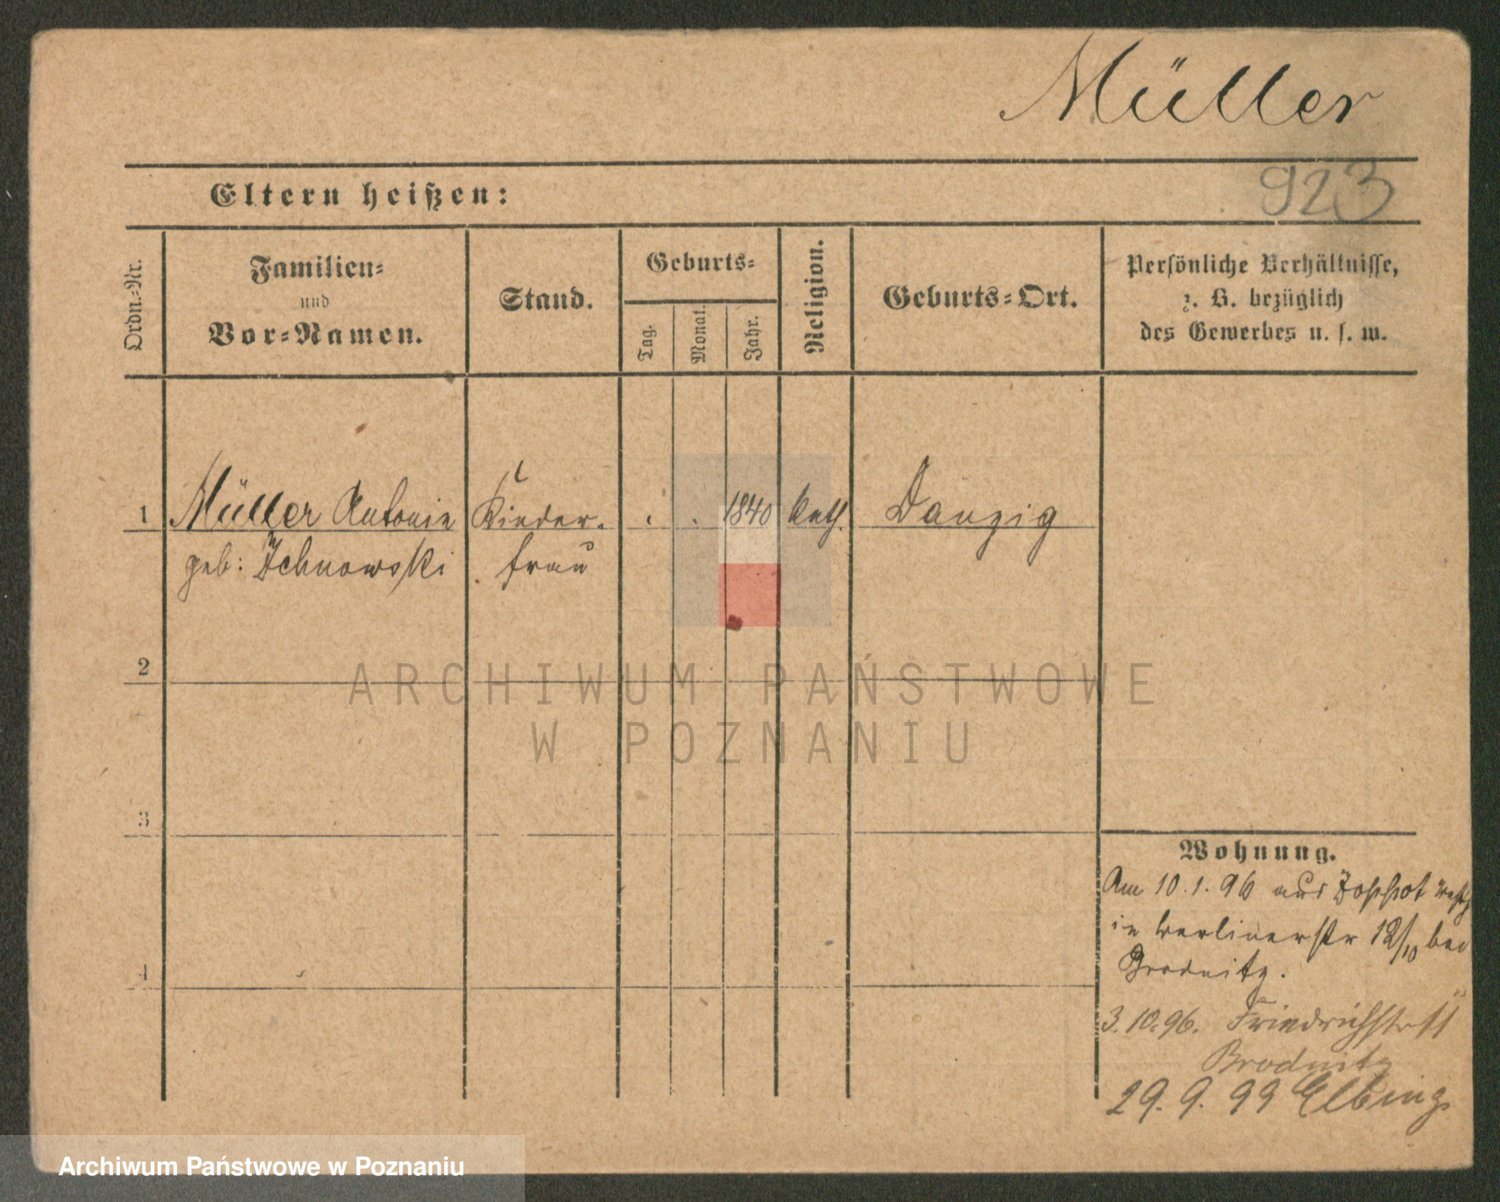 Müller
923
Eltern heißen:
Ordn.-Nr.
Familien-
und
Vor-Namen.
Stand.
Geburts-
Tag.
Monat.
Jahr.
Religion.
Geburts-Ort.
Persönliche Verhältnisse,
z. B. bezüglich
des Gewerbes u. s. w.
1 Müller Antonie Kinder- . . 1840 kath. Danzig
geb: frau
2
ARCHIWUM PAŃSTWOWE
W POZNANIU
3
Wohnung.
Am 10.1.96 aus Zoppot
in Berlinerstr 12/10 bei
Brodnitz.
4
3.10.96. Friedrichstr 11
Brodnitz
29.9.99 Elbing
Archiwum Państwowe w Poznaniu